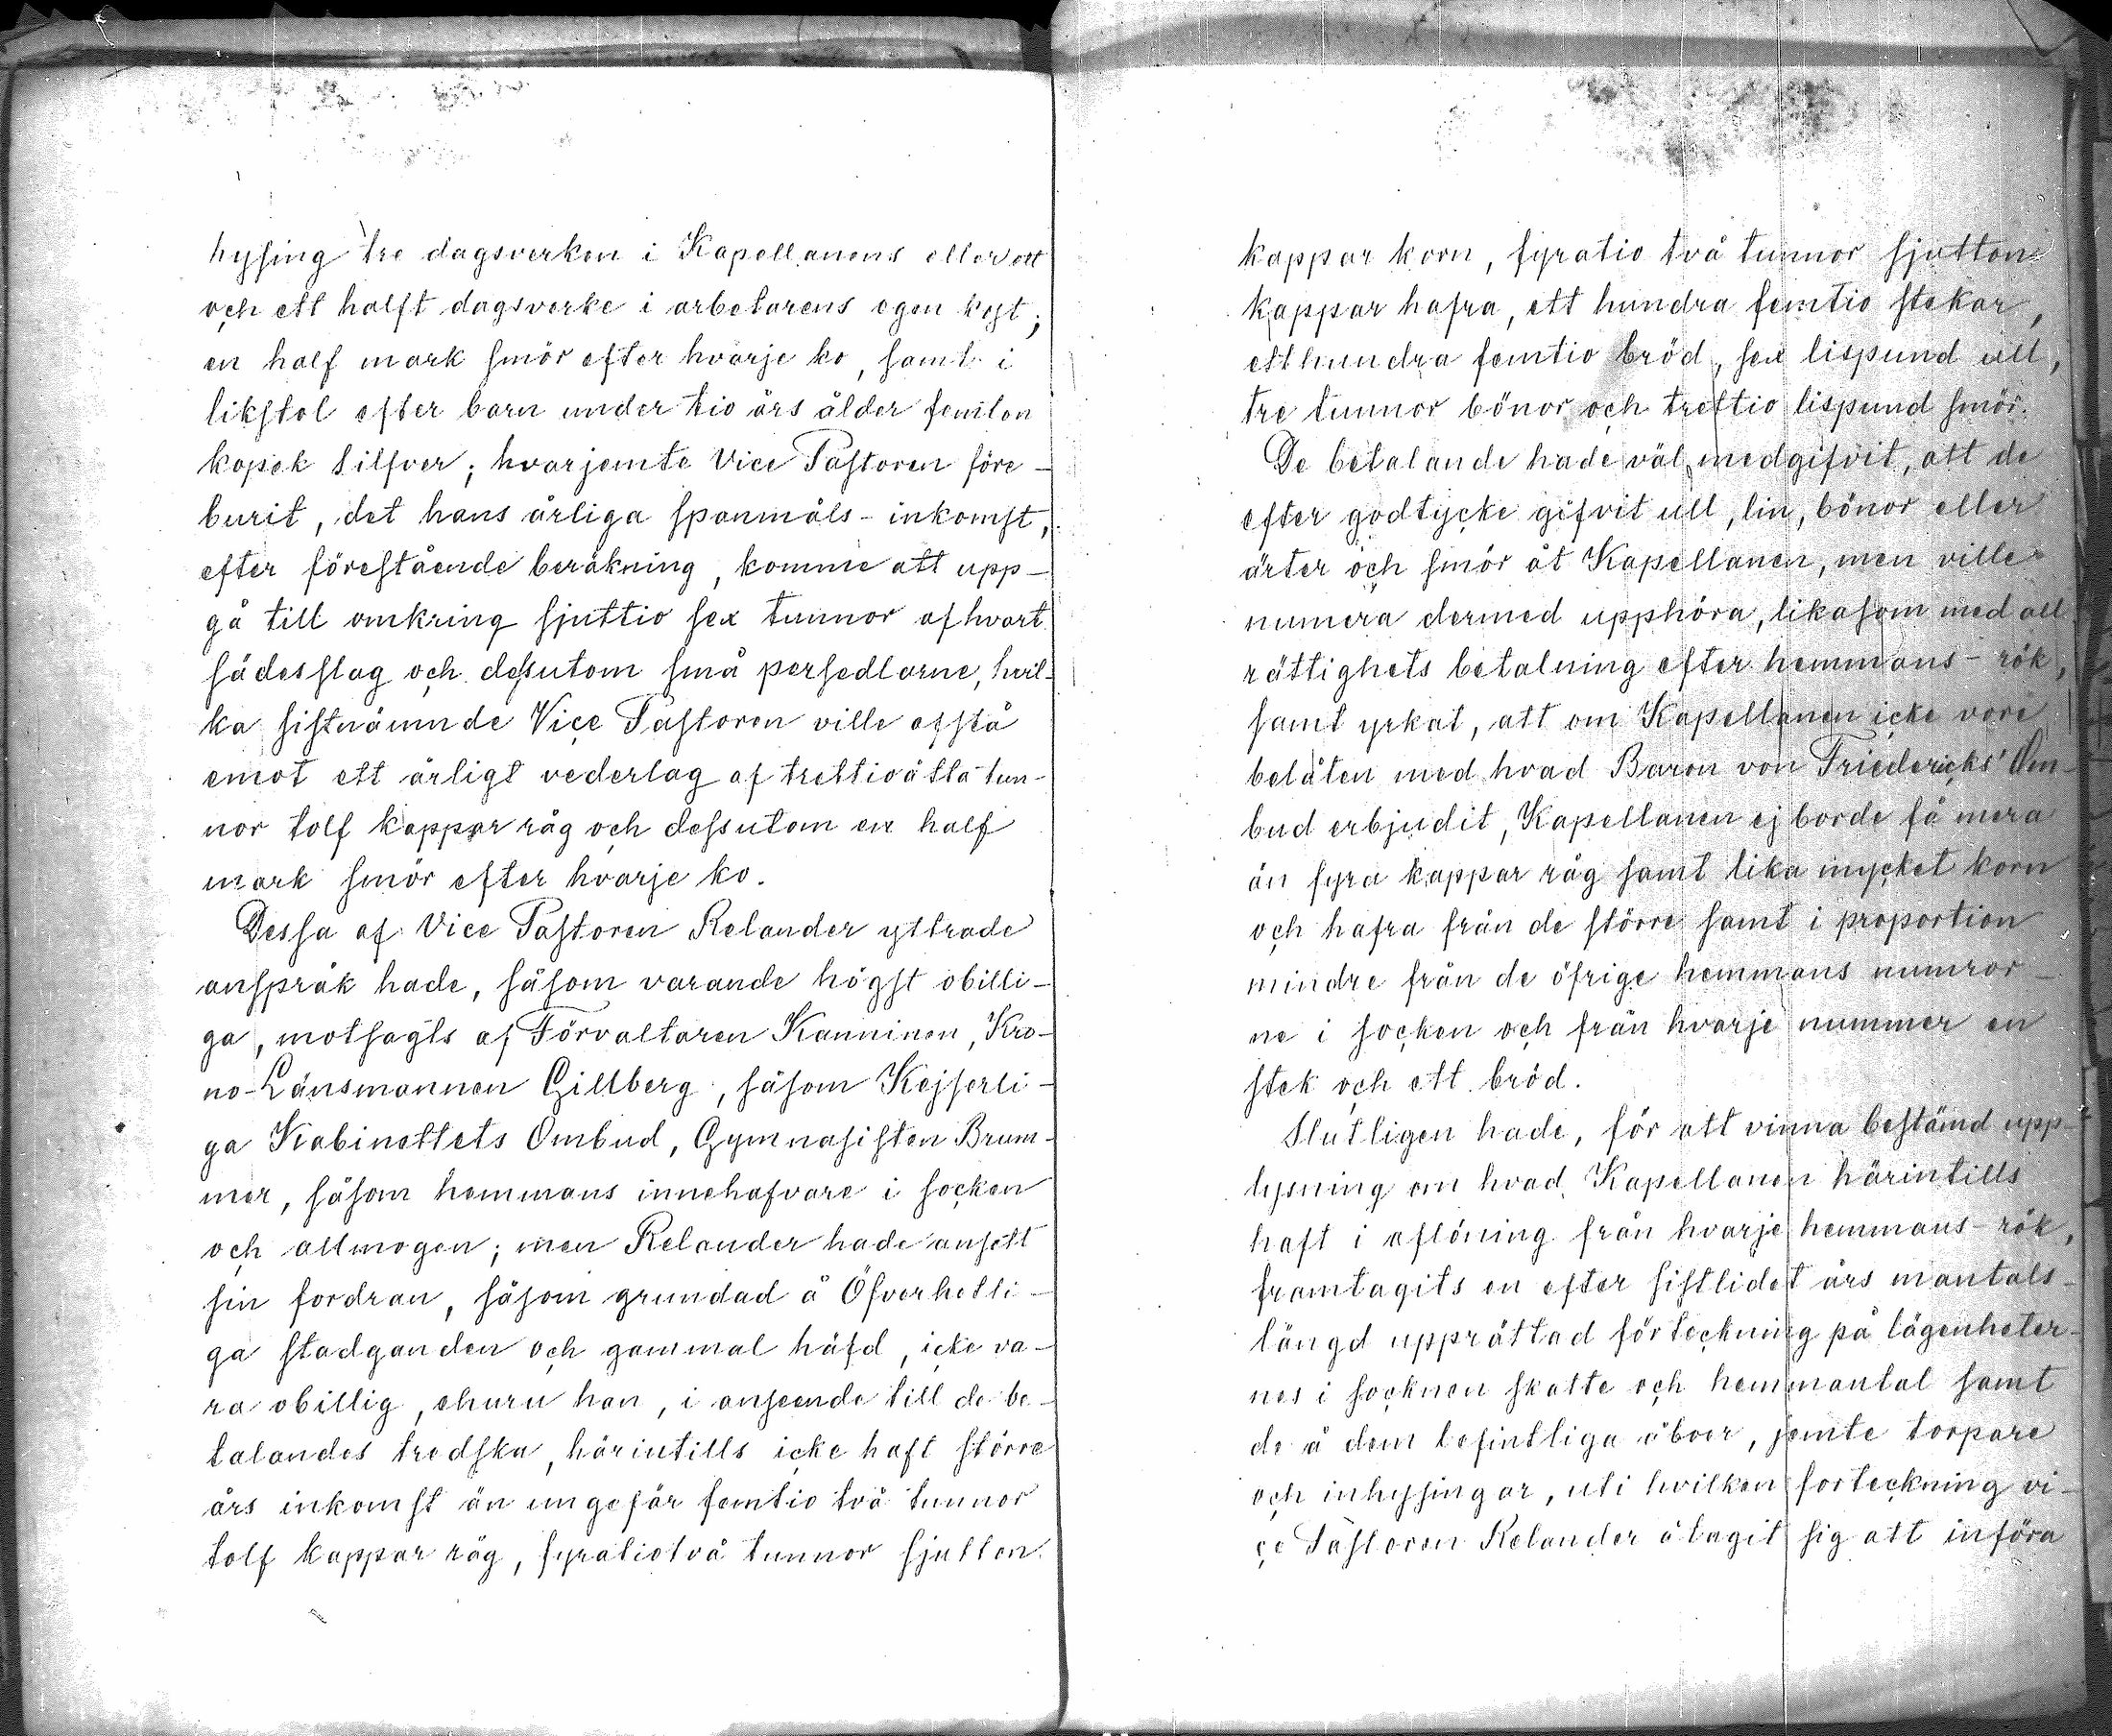 hysing tre dagsverken i Kapellanens eller ett
och ett halft dagsverke i arbetarens egen kost;
en half mark smör efter hvarje ko, samt i
likstol efter barn under tio års ålder femton
kopek silfver; hvarjemte Vice Pastoren före-
burit, det hans årliga spanmåls-inkomst,
efter förestående beräkning, komme att upp-
gå till omkring sjuttio sex tunnor af hvart
sädesslag och dessutom små persedlarne, hvil-
ka sistnämnde Vice Pastoren ville afstå
emot ett årligt vederlag af trettioåtta tun-
nor tolf kappar råg och dessutom en half
mark smör efter hvarje ko.
Dessa af Vice Pastoren Relander yttrade
anspråk hade, såsom varande högst obilli-
ga, motsagts af Förvaltaren Kanninen, Kro-
no-Länsmannen Gillberg, såsom Kejserli-
ga Kabinettets Ombud, Gymnasisten Brum-
mer, såsom hemmans innehafvare i socken
och allmogen; men Relander hade ansett
sin fordran, såsom grundad å Öfverhetli-
ga stadganden och gammal häfd, icke va-
ra obillig, ehuru han, i anseende till de be-
talandes tredska, härintills icke haft större
års inkomst än ungefär femtio två tunnor
tolf kappar råg, fyratiotvå tunnor sjutton
kappar korn, fyratio två tunnor sjutton
kappar hafra, ett hundra femtio stekar,
etthundra femtio bröd, sex lispund ull,
tre tunnor bönor och trettio lispund smör.
De betalande hade väl medgifvit, att de
efter godtycke gifvit ull, lin, bönor eller
ärter och smör åt Kapellanen, men ville
numera dermed upphöra, likasom med all
rättighets betalning efter hemmans-rök,
samt yrkat, att om Kapellanen icke vore
belåten med hvad Baron von Friedericks' Om-
bud erbjudit, Kapellanen ej borde få mera
än fyra kappar råg samt lika mycket korn
och hafra från de större samt i proportion
mindre från de öfrige hemmans numror-
ne i socken och från hvarje nummer en
stek och ett bröd.
Slutligen hade, för att vinna bestämd upp-
lysning om hvad Kapellanen härintills
haft i aflöning från hvarje hemmans-rök,
framtagits en efter sistlidet års mantals-
längd upprättad förteckning på lägenheter-
nes i socknen skatte och hemmantal samt
de å dem befintliga åboer, jemte torpare
och inhysingar, uti hvilken forteckning vi-
ce Pastoren Relander åtagit sig att införa